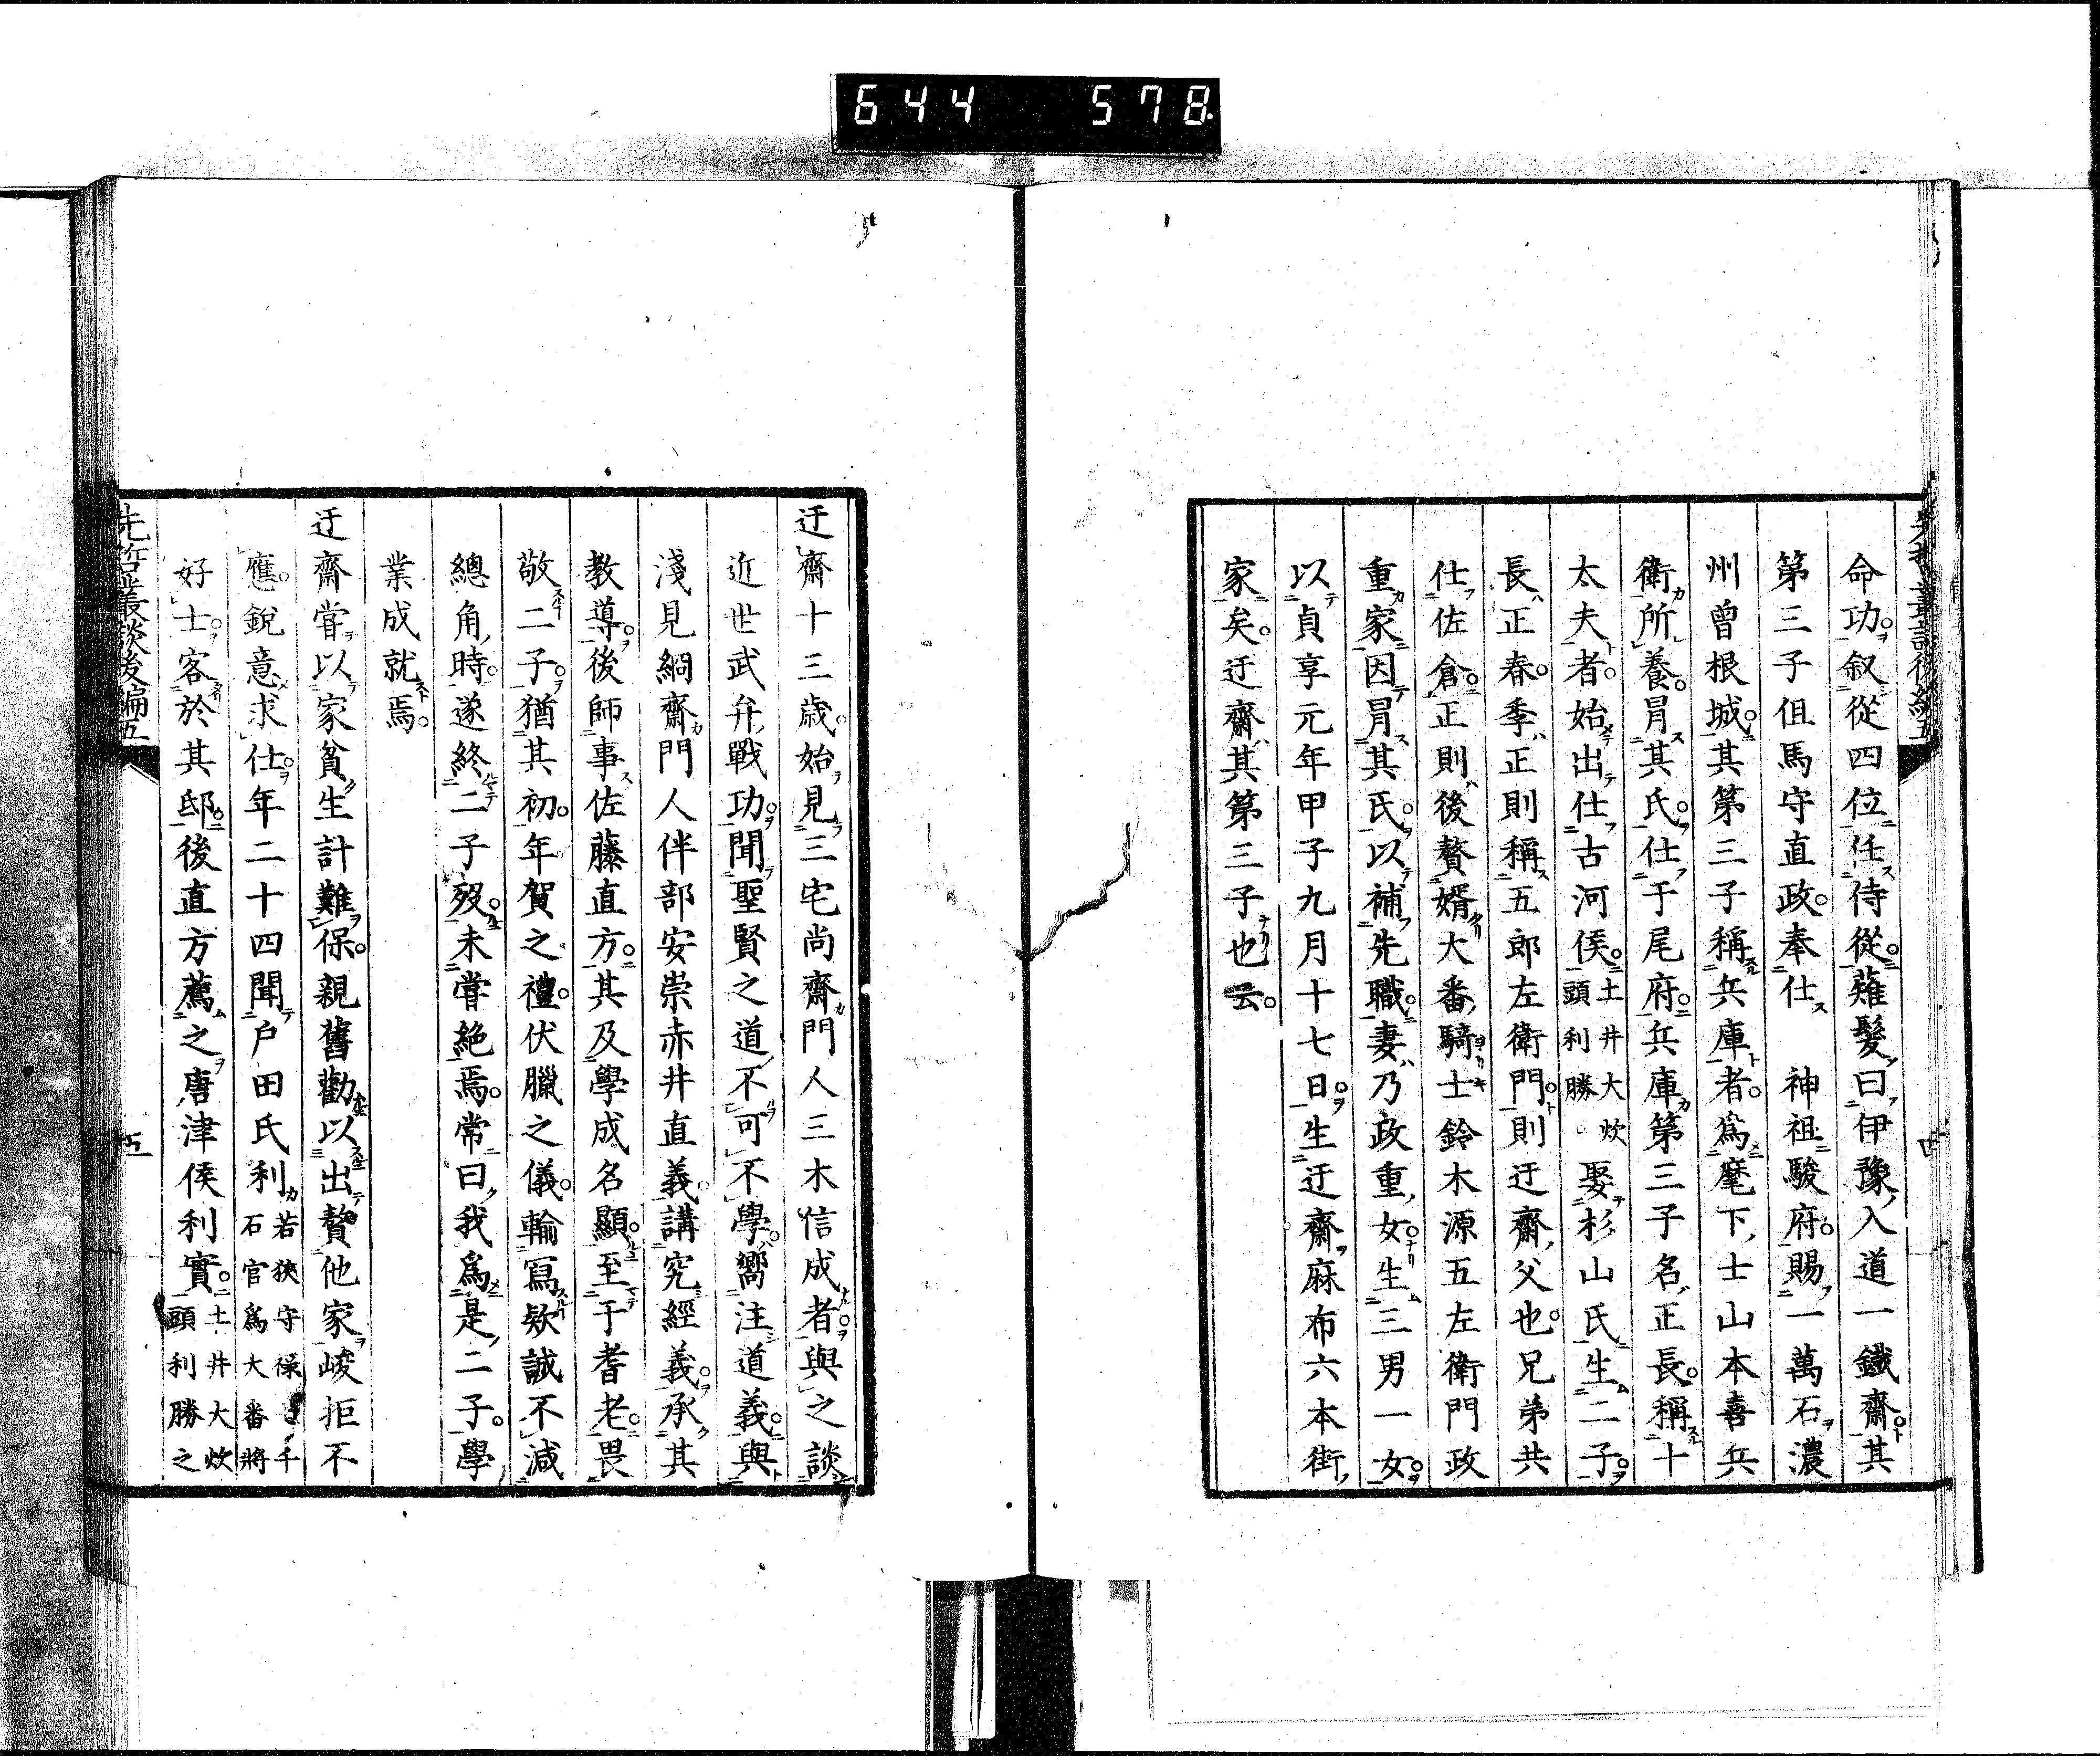 644 578
先哲叢談後編五
命功叙從四位任侍從薙髮曰伊豫入道一鐵齋其
第三子但馬守直政奉仕 神祖駿府賜一萬石濃
州曾根城其第三子稱兵庫者爲麾下士山本喜兵
衛所養冐其氏仕于尾府兵庫第三子名正長稱十
太夫者始出仕古河侯土井大炊頭利勝娶杉山氏生二子
長正春季正則稱五郎左衛門則迂齋父也兄弟共
仕佐倉正則後贅婿大番騎士鈴木源五左衛門政
重家因冐其氏以補先職妻乃政重女生三男一女
以貞享元年甲子九月十七日生迂齋麻布六本街
家矣迂齋其第三子也云
迂齋十三歳始見三宅尚齋門人三木信成者與之談
近世武弁戰功聞聖賢之道不可不學嚮注道義與
淺見絅齋門人伴部安崇赤井直義講究經義承其
教導後師事佐藤直方其及學成名顯至于耆老畏
敬二子猶其初年賀之禮伏臘之儀輸寫欵誠不减
總角時遂終二子歿未甞絶焉常曰我爲是二子學
業成就焉
迂齋甞以家貧生計難保親舊勸以出贅他家峻拒不
應鋭意求仕年二十四聞戸田氏利若狹守禄千石官爲大番將
好士客於其邸後直方薦之唐津侯利實土井大炊頭利勝之
先哲叢談後編五
五